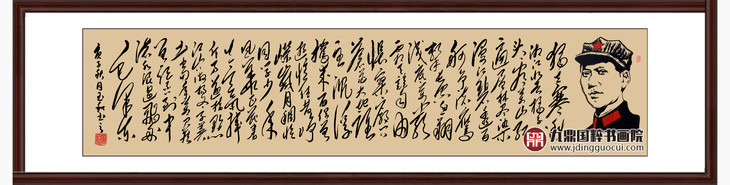 独立寒秋
湘江北去橘子
洲头看万山红
遍层林尽染
漫江碧透百
舸争流鹰
击长空鱼翔
浅底万类
霜天竞自由
怅寥廓问
苍茫大地谁
主沉浮
携来百侣曾
游忆往昔峥
嵘岁月稠恰
同学少年
风华正茂书
生意气挥斥
方遒指点
江山激扬文字粪
土当年万户侯
曾记否到中
流击水浪遏飞舟
毛泽东
庚子秋月
九鼎国粹书画院
www.jdingguocui.com